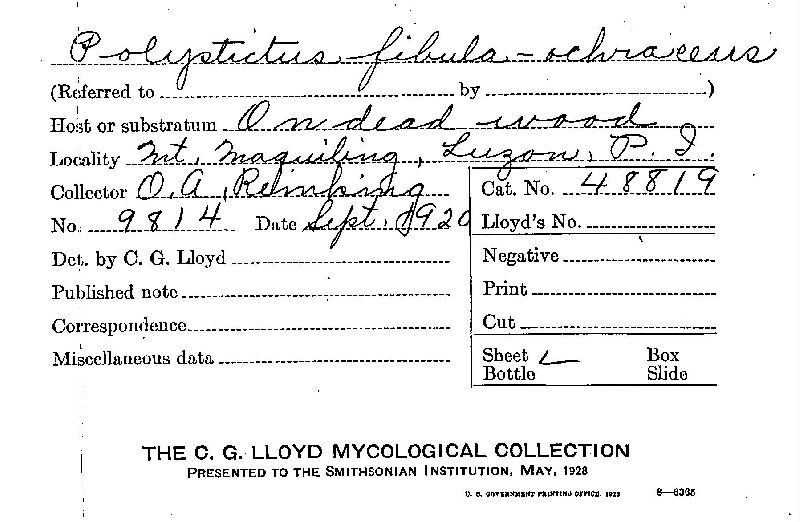 Polystictus fibula-ochraceus
(Referred to by )
Host or substratum On dead wood
Locality Mt. Maquiling, Luzon, P. I.
Collector O. A. Reinking
Cat. No. 48819
No. 9814 Date Sept. 1920
Lloyd's No.
Det. by C. G. Lloyd
Negative
Published note
Print
Correspondence
Cut
Miscellaneous data
Sheet Box
Bottle Slide
THE C. G. LLOYD MYCOLOGICAL COLLECTION
PRESENTED TO THE SMITHSONIAN INSTITUTION, MAY, 1928
U. S. GOVERNMENT PRINTING OFFICE, 1928